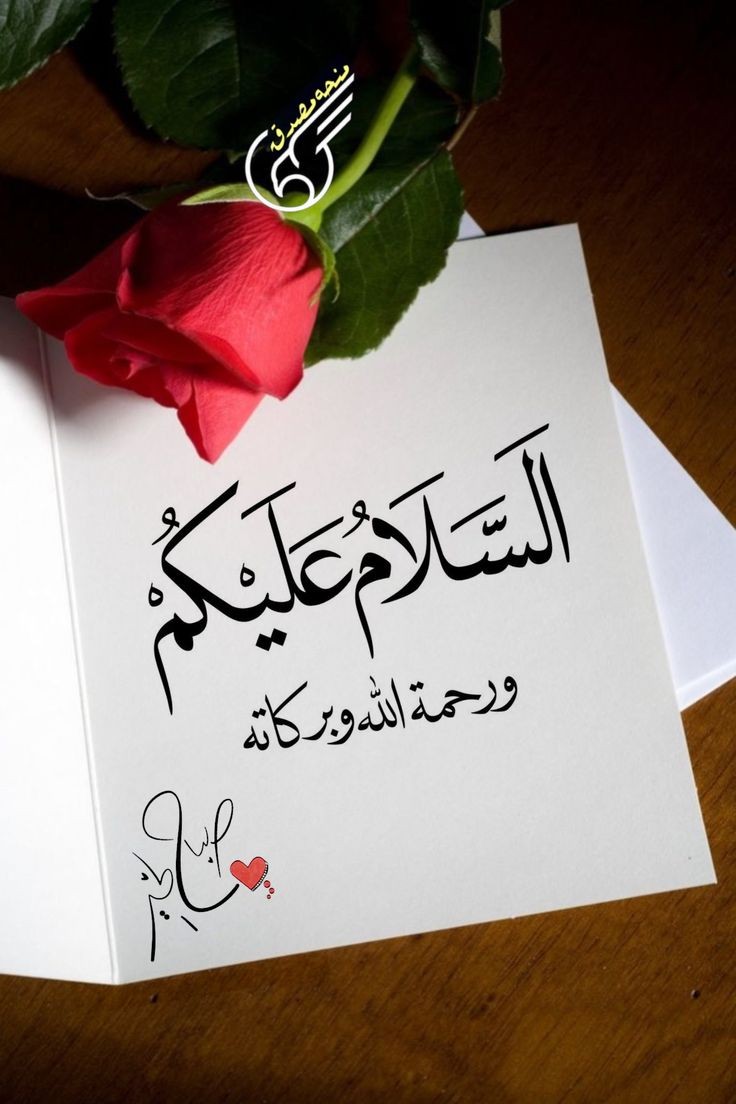 منحه مصدق
اَلسَّلَامُ عَلَيْكُمْ
ورحمة الله وبركاته
صباح الخير